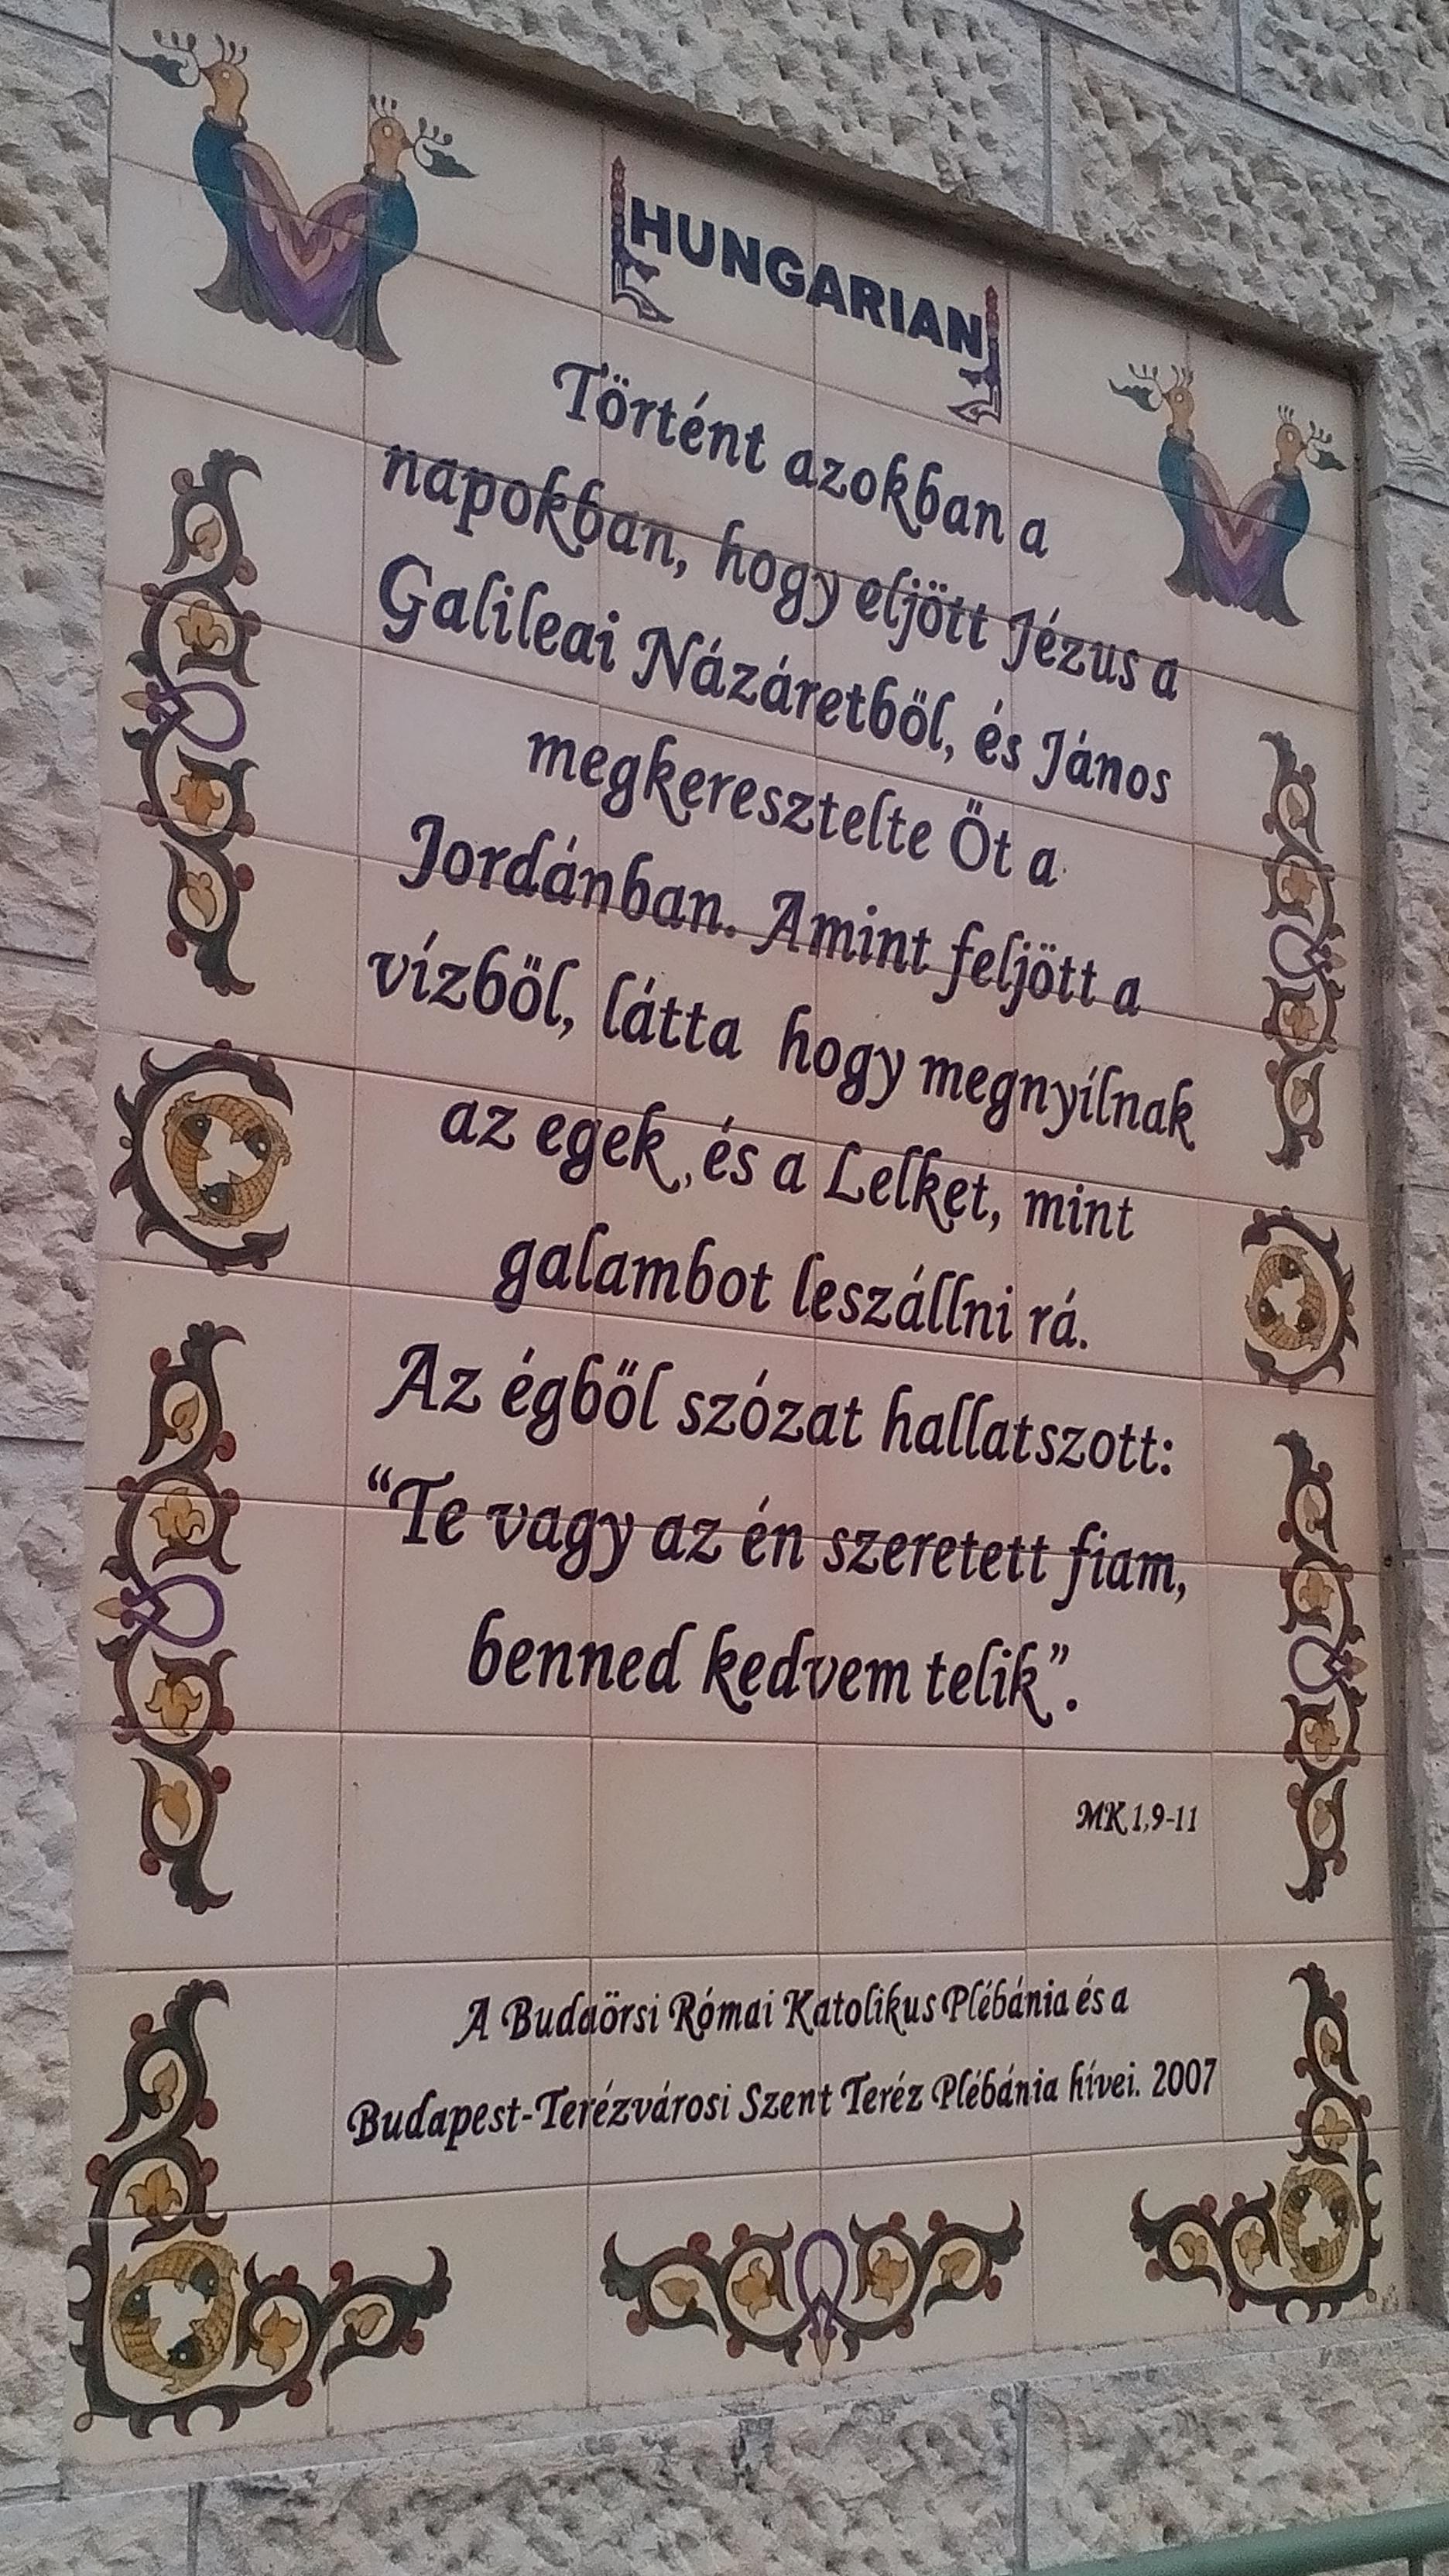 HUNGARIAN
Történt azokban a
napokban, hogy eljött Jézus a
Galileai Názáretből, és János
megkeresztelte Őt a
Jordánban. Amint feljött a
vízből, látta hogy megnyílnak
az egek, és a Lelket, mint
galambot leszállni rá.
Az égből szózat hallatszott:
“Te vagy az én szeretett fiam,
benned kedvem telik”.
MK 1,9-11
A Budaörsi Római Katolikus Plébánia és a
Budapest-Terézvárosi Szent Teréz Plébánia hívei. 2007